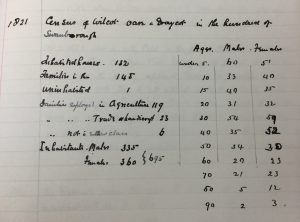 1821 Census of Wilcot cum Draycot in the hundred of
Swanborough
Ages. Males. Females
Inhabited houses. 132 under 5. 60 51
Families in do 145 10 33 40
Uninhabited 1 15 49 35
Families employed in Agriculture 119 20 31 32
" " " Trade & handicraft 20 30 54
" Not in either class 6 40 35 52
Inhabitants. Males 335 50 34 30
Females 360 } 695 60 20 23
70 21 23
80 5 12
90 2 3